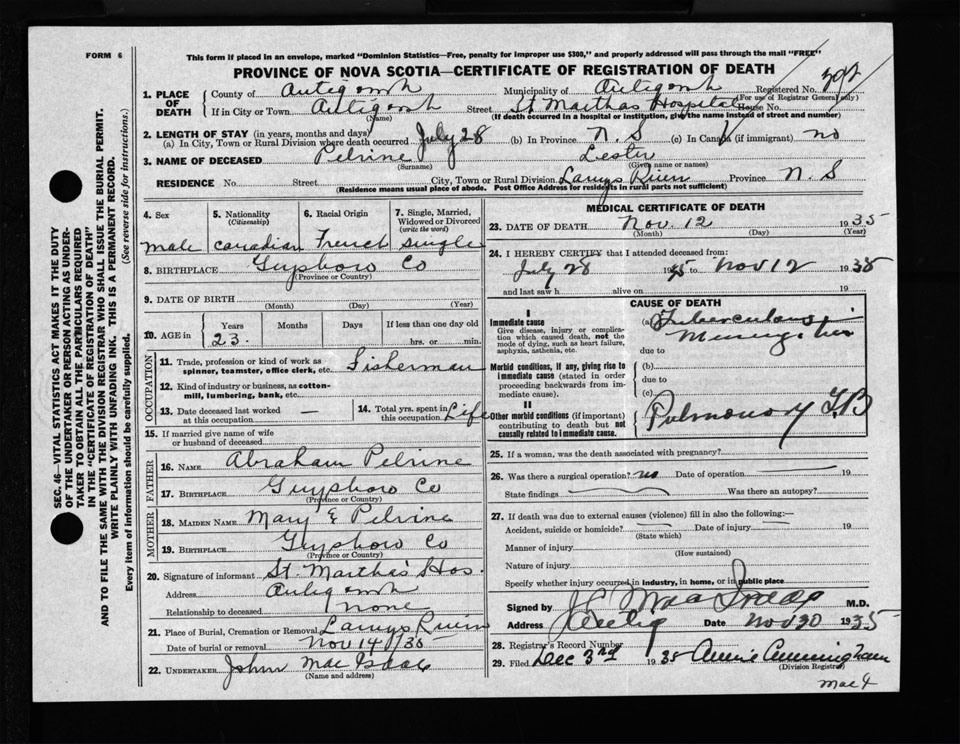 FORM 6
This form if placed in an envelope, marked "Dominion Statistics—Free, penalty for improper use $300," and properly addressed will pass through the mail "FREE"
PROVINCE OF NOVA SCOTIA—CERTIFICATE OF REGISTRATION OF DEATH
SEC. 46—VITAL STATISTICS ACT MAKES IT THE DUTY
OF THE UNDERTAKER OR PERSON ACTING AS UNDER-
TAKER TO OBTAIN ALL THE PARTICULARS REQUIRED
IN THE "CERTIFICATE OF REGISTRATION OF DEATH"
AND TO FILE THE SAME WITH THE DIVISION REGISTRAR WHO SHALL ISSUE THE BURIAL PERMIT.
WRITE PLAINLY WITH UNFADING INK. THIS IS A PERMANENT RECORD.
Every item of information should be carefully supplied. (See reverse side for instructions.)
1. PLACE OF DEATH
County of Antigonish Municipality of Antigonish Registered No. 392
(For use of Registrar General only)
If in City or Town Antigonish Street St Marthas Hospital House No.
(Name) (If death occurred in a hospital or institution, give the name instead of street and number)
2. LENGTH OF STAY (in years, months and days)
(a) In City, Town or Rural Division where death occurred July 28 (b) In Province N. S (c) In Canada (if immigrant) no
3. NAME OF DECEASED Pelrine Lester
(Surname) (Given name or names)
RESIDENCE No. Street City, Town or Rural Division Larrys River Province N. S
(Residence means usual place of abode. Post Office Address for residents in rural parts not sufficient)
4. Sex 5. Nationality (Citizenship) 6. Racial Origin 7. Single, Married, Widowed or Divorced (write the word)
male Canadian French single
8. BIRTHPLACE Guysboro Co
(Province or Country)
9. DATE OF BIRTH
(Month) (Day) (Year)
10. AGE in Years Months Days If less than one day old
23. hrs. or min.
OCCUPATION
11. Trade, profession or kind of work as spinner, teamster, office clerk, etc. Fisherman
12. Kind of industry or business, as cotton-mill, lumbering, bank, etc.
13. Date deceased last worked at this occupation — 14. Total yrs. spent in this occupation Life
15. If married give name of wife or husband of deceased
FATHER
16. NAME Abraham Pelrine
17. BIRTHPLACE Guysboro Co
(Province or Country)
MOTHER
18. MAIDEN NAME Mary E Pelrine
19. BIRTHPLACE Guysboro Co
(Province or Country)
20. Signature of informant St. Martha's Hos.
Address Antigonish
Relationship to deceased none
21. Place of Burial, Cremation or Removal Larrys River
Date of burial or removal Nov 14/35
22. UNDERTAKER John Mac Isaac
(Name and address)
MEDICAL CERTIFICATE OF DEATH
23. DATE OF DEATH Nov. 12 1935
(Month) (Day) (Year)
24. I HEREBY CERTIFY that I attended deceased from:
July 28 1935 to Nov 12 1935
and last saw h alive on 19
CAUSE OF DEATH
I
Immediate cause
Give disease, injury or complication which caused death, not the mode of dying, such as heart failure, asphyxia, asthenia, etc.
(a) Tuberculous
Meningitis
due to
Morbid conditions, if any, giving rise to immediate cause (stated in order proceeding backwards from immediate cause).
(b)
due to
(c)
II
Other morbid conditions (if important) contributing to death but not causally related to immediate cause.
Pulmonary T.B
25. If a woman, was the death associated with pregnancy?
26. Was there a surgical operation? no Date of operation 19
State findings Was there an autopsy?
27. If death was due to external causes (violence) fill in also the following:—
Accident, suicide or homicide? Date of injury 19
(State which)
Manner of injury
(How sustained)
Nature of injury
Specify whether injury occurred in industry, in home, or in public place
Signed by M.D.
Address Antig Date Nov 30 1935
28. Registrar's Record Number
29. Filed Dec 3rd 1935 Annie Cunningham
(Division Registrar)